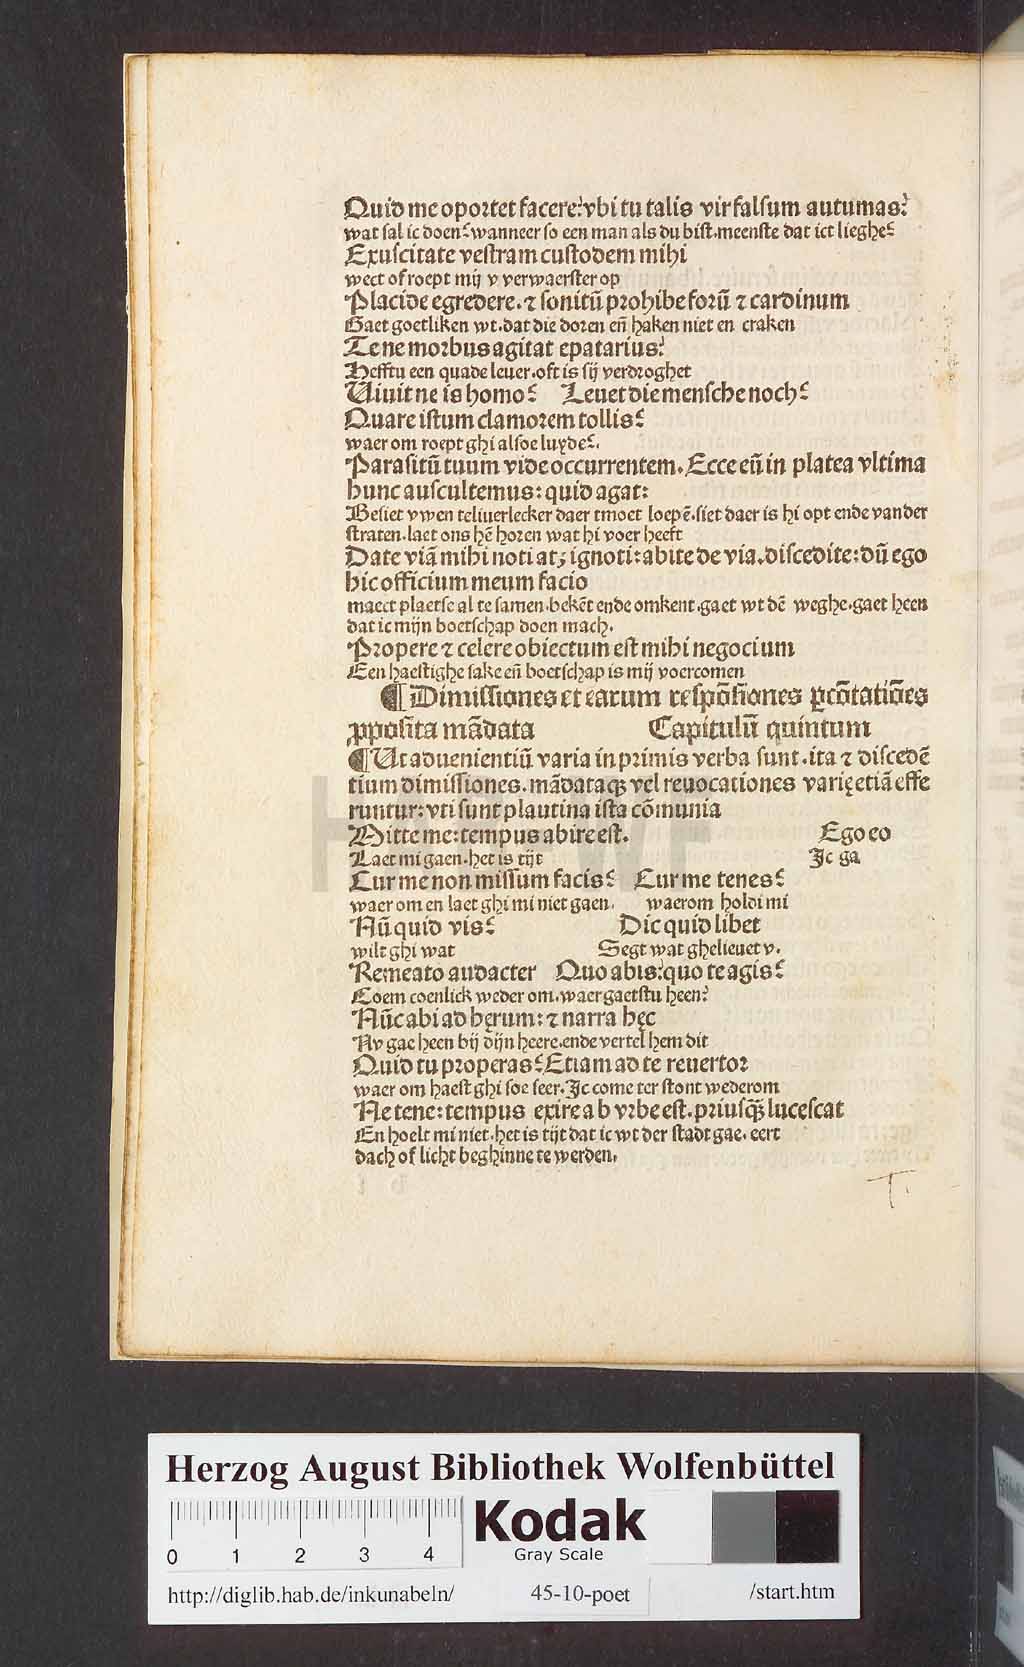 Quid me oportet facere? vbi tu talis vir falsum autumas?
wat sal ic doen? wanneer so een man als du bist. meenste dat ict lieghe?
Exuscitate vestram custodem mihi
wect of roept mij v verwaerster op
Placide egredere. ⁊ sonitū prohibe forū ⁊ cardinum
Gaet goetliken wt. dat die doren eñ haken niet en craken
Te ne morbus agitat epatarius?
Hefftu een quade leuer. oft is sij verdroghet
Uiuit ne is homo? Leuet die mensche noch?
Quare istum clamorem tollis?
waer om roept ghi alsoe luyde?.
Parasitū tuum vide occurrentem. Ecce eū in platea vltima
hunc auscultemus: quid agat:
Besiet v wen teliuerlecker daer tmoet loepē. siet daer is hi opt ende vander
straten. laet ons hē horen wat hi voer heeft
Date viā mihi noti atꝫ ignoti: abite de via. discedite: dū ego
hic officium meum facio
maect plaetse al te samen. bekēt ende omkent. gaet wt dē weghe. gaet heen
dat ic mijn boetschap doen mach.
Propere ⁊ celere obiectum est mihi negocium
Een haestighe sake eñ boetschap is mij voercomen
¶ Dimissiones et earum respōsiones ꝑcōtatiōes
ꝓposita mādata Capitulū quintum
¶ Ut aduenientiū varia in primis verba sunt. ita ⁊ discedē
tium dimissiones. mādataqꝫ vel reuocationes varię etiā effe
runtur: vti sunt plautina ista cōmunia
Mitte me: tempus abire est. Ego eo
Laet mi gaen. het is tijt Ic ga
Cur me non missum facis? Cur me tenes?
waer om en laet ghi mi niet gaen. waerom holdi mi
Nū quid vis? Dic quid libet
wilt ghi wat Segt wat ghelieuet v.
Remeato audacter Quo abis? quo te agis?
Coem coenlick weder om. waer gaetstu heen?
Nūc abi ad hęrum: ⁊ narra hęc
Nv gae heen bij dijn heere. ende vertel hem dit
Quid tu properas? Etiam ad te reuertor
waer om haest ghi soe seer. Ic come ter stont wederom
Ne tene: tempus exire ab vrbe est. priusqꝫ lucescat
En hoelt mi niet. het is tijt dat ic wt der stadt gae. eert
dach of licht beghinne te werden.
T.
HAB WF
Herzog August Bibliothek Wolfenbüttel
Kodak
Gray Scale
0 1 2 3 4
http://diglib.hab.de/inkunabeln/ 45-10-poet /start.htm